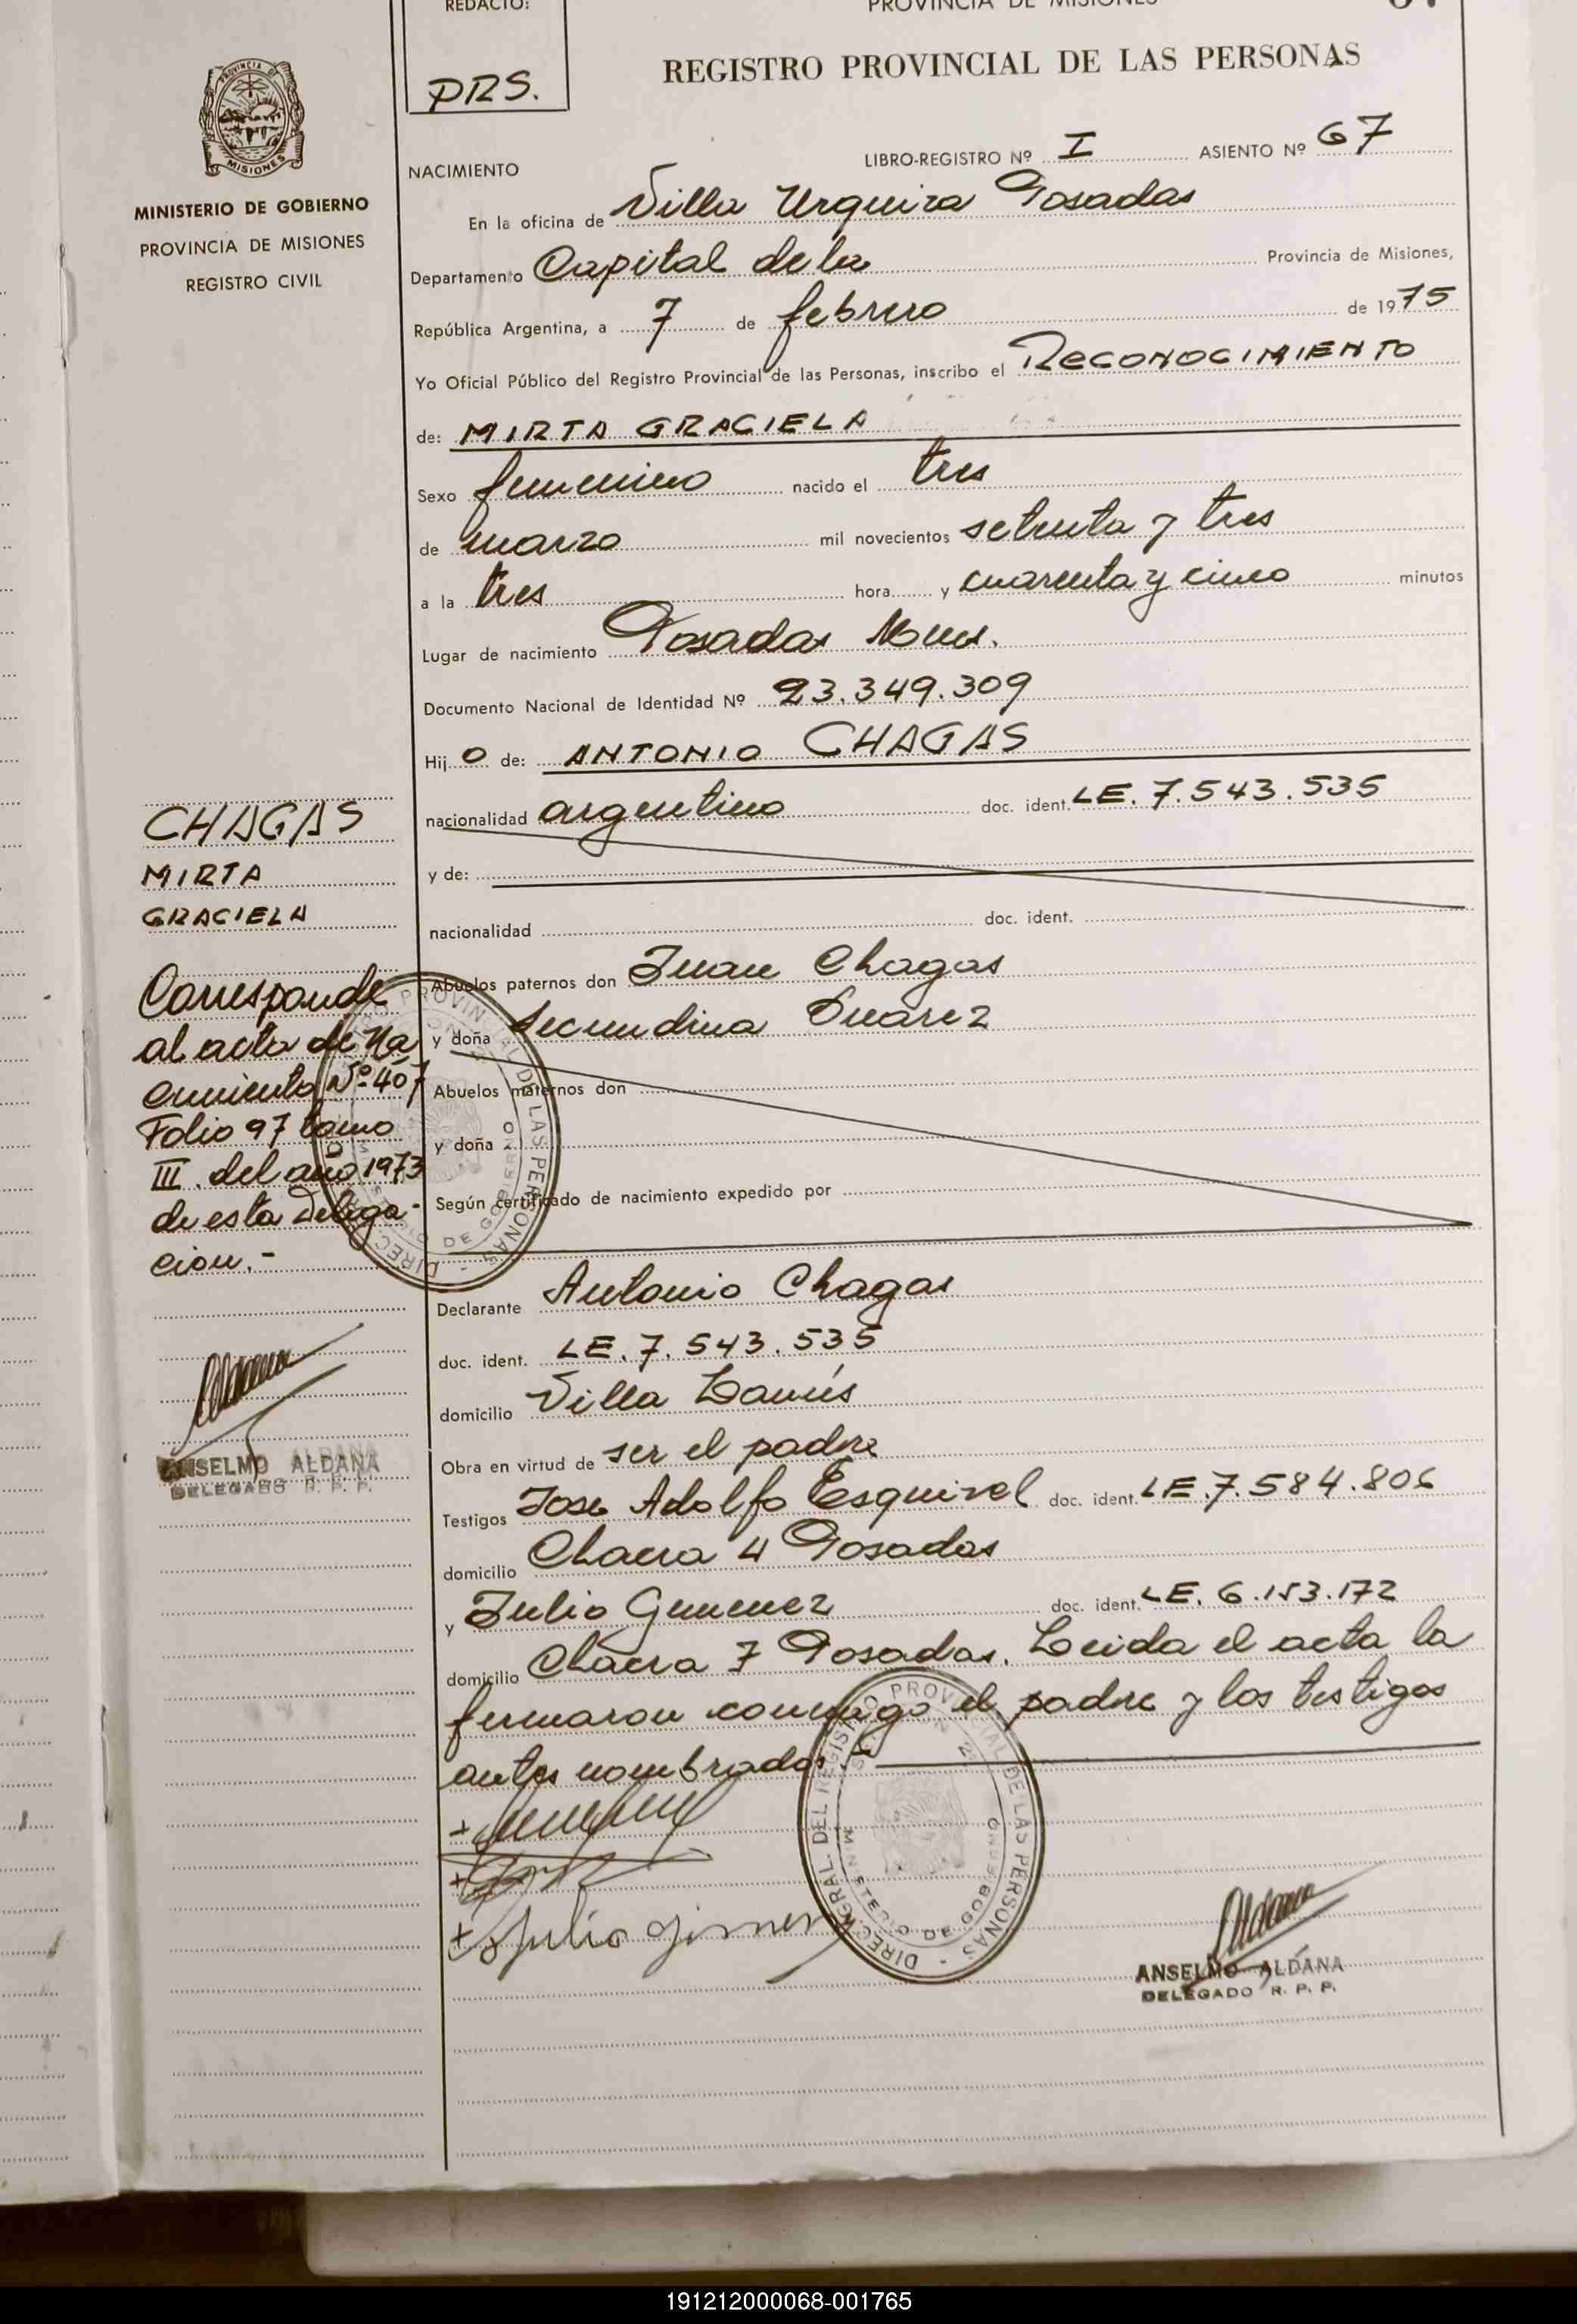 REDACTO:
PROVINCIA DE MISIONES
67
PRS.
REGISTRO PROVINCIAL DE LAS PERSONAS
PROVINCIA DE
MISIONES
MINISTERIO DE GOBIERNO
PROVINCIA DE MISIONES
REGISTRO CIVIL
NACIMIENTO
LIBRO-REGISTRO Nº I ASIENTO Nº 67
En la oficina de Villa Urquiza Posadas
Departamento Capital de la Provincia de Misiones,
República Argentina, a 7 de febrero de 1975
Yo Oficial Público del Registro Provincial de las Personas, inscribo el RECONOCIMIENTO
de: MIRTA GRACIELA
Sexo femenino nacido el tres
de marzo mil novecientos setenta y tres
a la tres hora y cuarenta y cinco minutos
Lugar de nacimiento Posadas Mnes.
Documento Nacional de Identidad Nº 23.349.309
Hij o de: ANTONIO CHAGAS
nacionalidad argentino doc. ident. LE. 7.543.535
y de:
nacionalidad doc. ident.
Abuelos paternos don Juan Chagas
y doña Secundina Suarez
Abuelos maternos don
y doña
Según certificado de nacimiento expedido por
CHAGAS
MIRTA
GRACIELA
Corresponde
al acta de Na
cimiento Nº 407
Folio 97 tomo
III. del año 1973
de esta Delega-
cion.-
ANSELMO ALDANA
DELEGADO R. P. P.
Declarante Antonio Chagas
doc. ident. LE. 7.543.535
domicilio Villa Lanús
Obra en virtud de ser el padre
Testigos Jose Adolfo Esquivel doc. ident. LE. 7.584.806
domicilio Chacra 4 Posadas
y Julio Gimenez doc. ident. LE. 6.153.172
domicilio Chacra 7 Posadas. Leida el acta la
firmaron conmigo el padre y los testigos
antes nombrados.-
DIREC. GRAL. DEL REGISTRO PROVINCIAL DE LAS PERSONAS -
MINISTERIO DE GOBIERNO
Julio Gimenez
ANSELMO ALDANA
DELEGADO R. P. P.
191212000068-001765